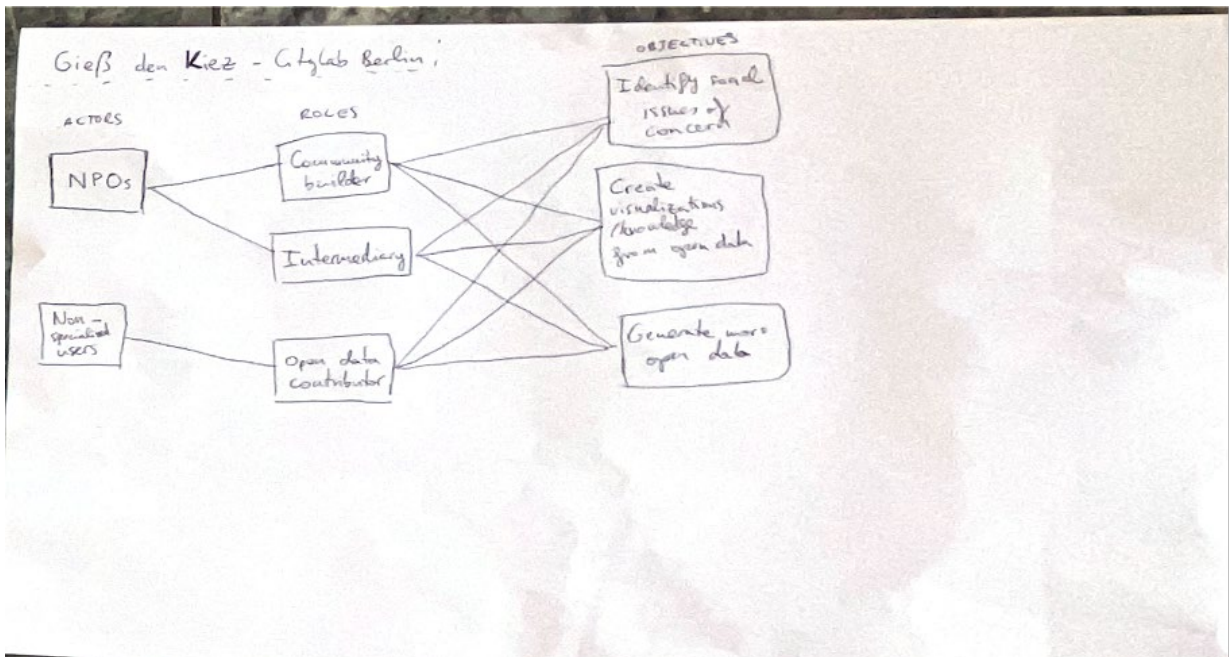 Gieß den Kiez - Citylab Berlin:
ACTORS
NPOs
Non-
specialized
users
ROLES
Community
builder
Intermediary
Open data
contributor
OBJECTIVES
Identify
issues of
concern
Create
visualizations
/knowledge
from open data
Generate more
open data